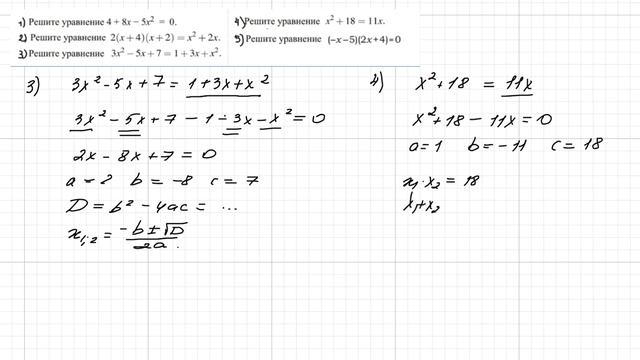 1) Решите уравнение 4 + 8x − 5x² = 0.
2) Решите уравнение 2(x + 4)(x + 2) = x² + 2x.
3) Решите уравнение 3x² − 5x + 7 = 1 + 3x + x².
4) Решите уравнение x² + 18 = 11x.
5) Решите уравнение (−x −5)(2x +4)=0
3) 3x² - 5x + 7 = 1 + 3x + x²
3x² - 5x + 7 - 1 - 3x - x² = 0
2x - 8x + 7 = 0
a = 2 b = -8 c = 7
D = b² - 4ac = ...
x₁,₂ = (-b ± √D)/2a
4) x² + 18 = 11x
x² + 18 - 11x = 0
a = 1 b = -11 c = 18
x₁ · x₂ = 18
x₁ + x₂